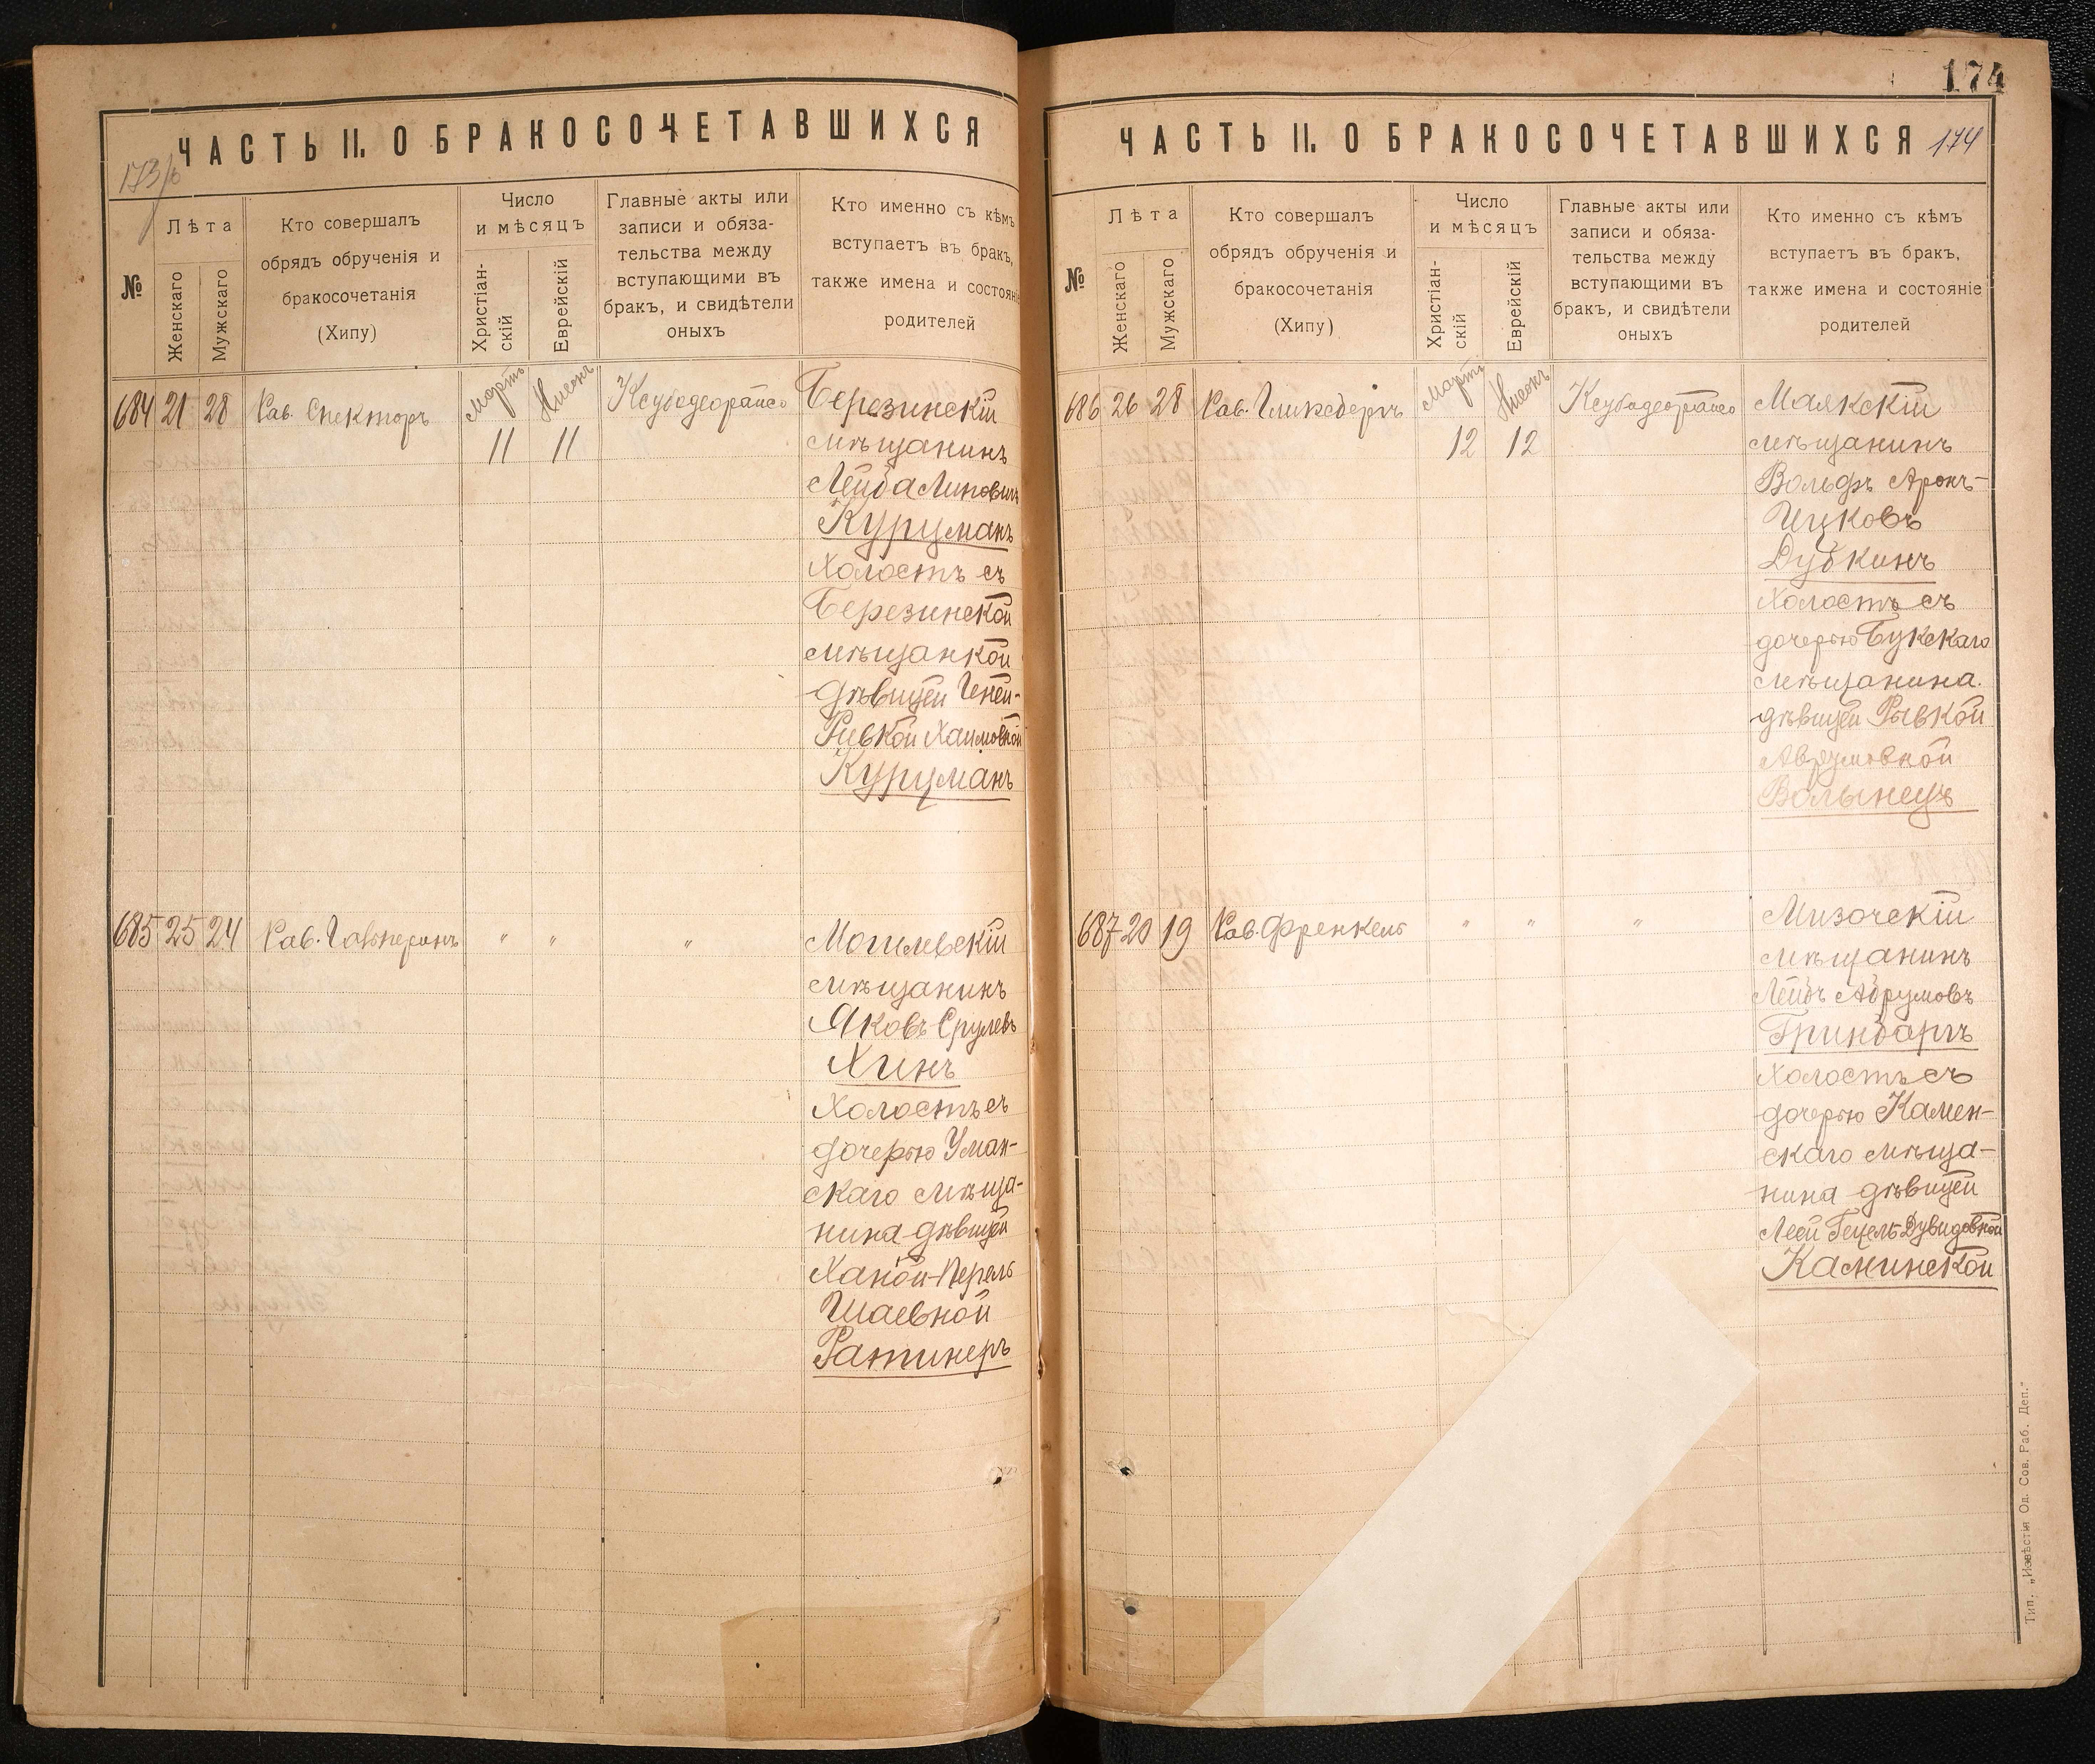 ЧАСТЬ II. О БРАКОСОЧЕТАВШИХСЯ
173/б
№
Лѣта
Женскаго
Мужскаго
Кто совершалъ
обрядъ обрученія и
бракосочетанія
(Хипу)
Число
и мѣсяцъ
Христіан-
скій
Еврейскій
Главные акты или
записи и обяза-
тельства между
вступающими въ
бракъ, и свидѣтели
оныхъ
Кто именно съ кѣмъ
вступаетъ въ бракъ,
также имена и состояніе
родителей
684 21 28 Рав. Спекторъ Мартъ Нисонъ Ксубадеорайсо Березинскій
11 11 мѣщанинъ
Лейба Липовичъ
Куруманъ
холостъ съ
Березинской
мѣщанкой
дѣвицей Геней-
Ривкой Хаимовной
Куруманъ
685 25 24 Рав. Гальперинъ " " " Могилевскій
мѣщанинъ
Яковъ Срулевъ
Хинъ
холостъ съ
дочерью Уман-
скаго мѣща-
нина дѣвицей
Ханой-Перель
Шаевной
Ратинеръ
174
ЧАСТЬ II. О БРАКОСОЧЕТАВШИХСЯ 174
№
Лѣта
Женскаго
Мужскаго
Кто совершалъ
обрядъ обрученія и
бракосочетанія
(Хипу)
Число
и мѣсяцъ
Христіан-
скій
Еврейскій
Главные акты или
записи и обяза-
тельства между
вступающими въ
бракъ, и свидѣтели
оныхъ
Кто именно съ кѣмъ
вступаетъ въ бракъ,
также имена и состояніе
родителей
686 26 28 Рав. Гликсбергъ Мартъ Нисонъ Ксубадеорайсо Маякскій
12 12 мѣщанинъ
Вольфъ Аронъ-
Ицковъ
Дубкинъ
холостъ съ
дочерью Букскаго
мѣщанина
дѣвицей Рывкой
Аврумовной
Волынецъ
687 20 19 Рав. Френкель " " " Мизочскій
мѣщанинъ
Лейбъ Абрумовъ
Гринбаргъ
холостъ съ
дочерью Камен-
скаго мѣща-
нина дѣвицей
Леей Гецель-Дувидовной
Каминской
Тип. „Извѣстія Од. Сов. Раб. Деп."